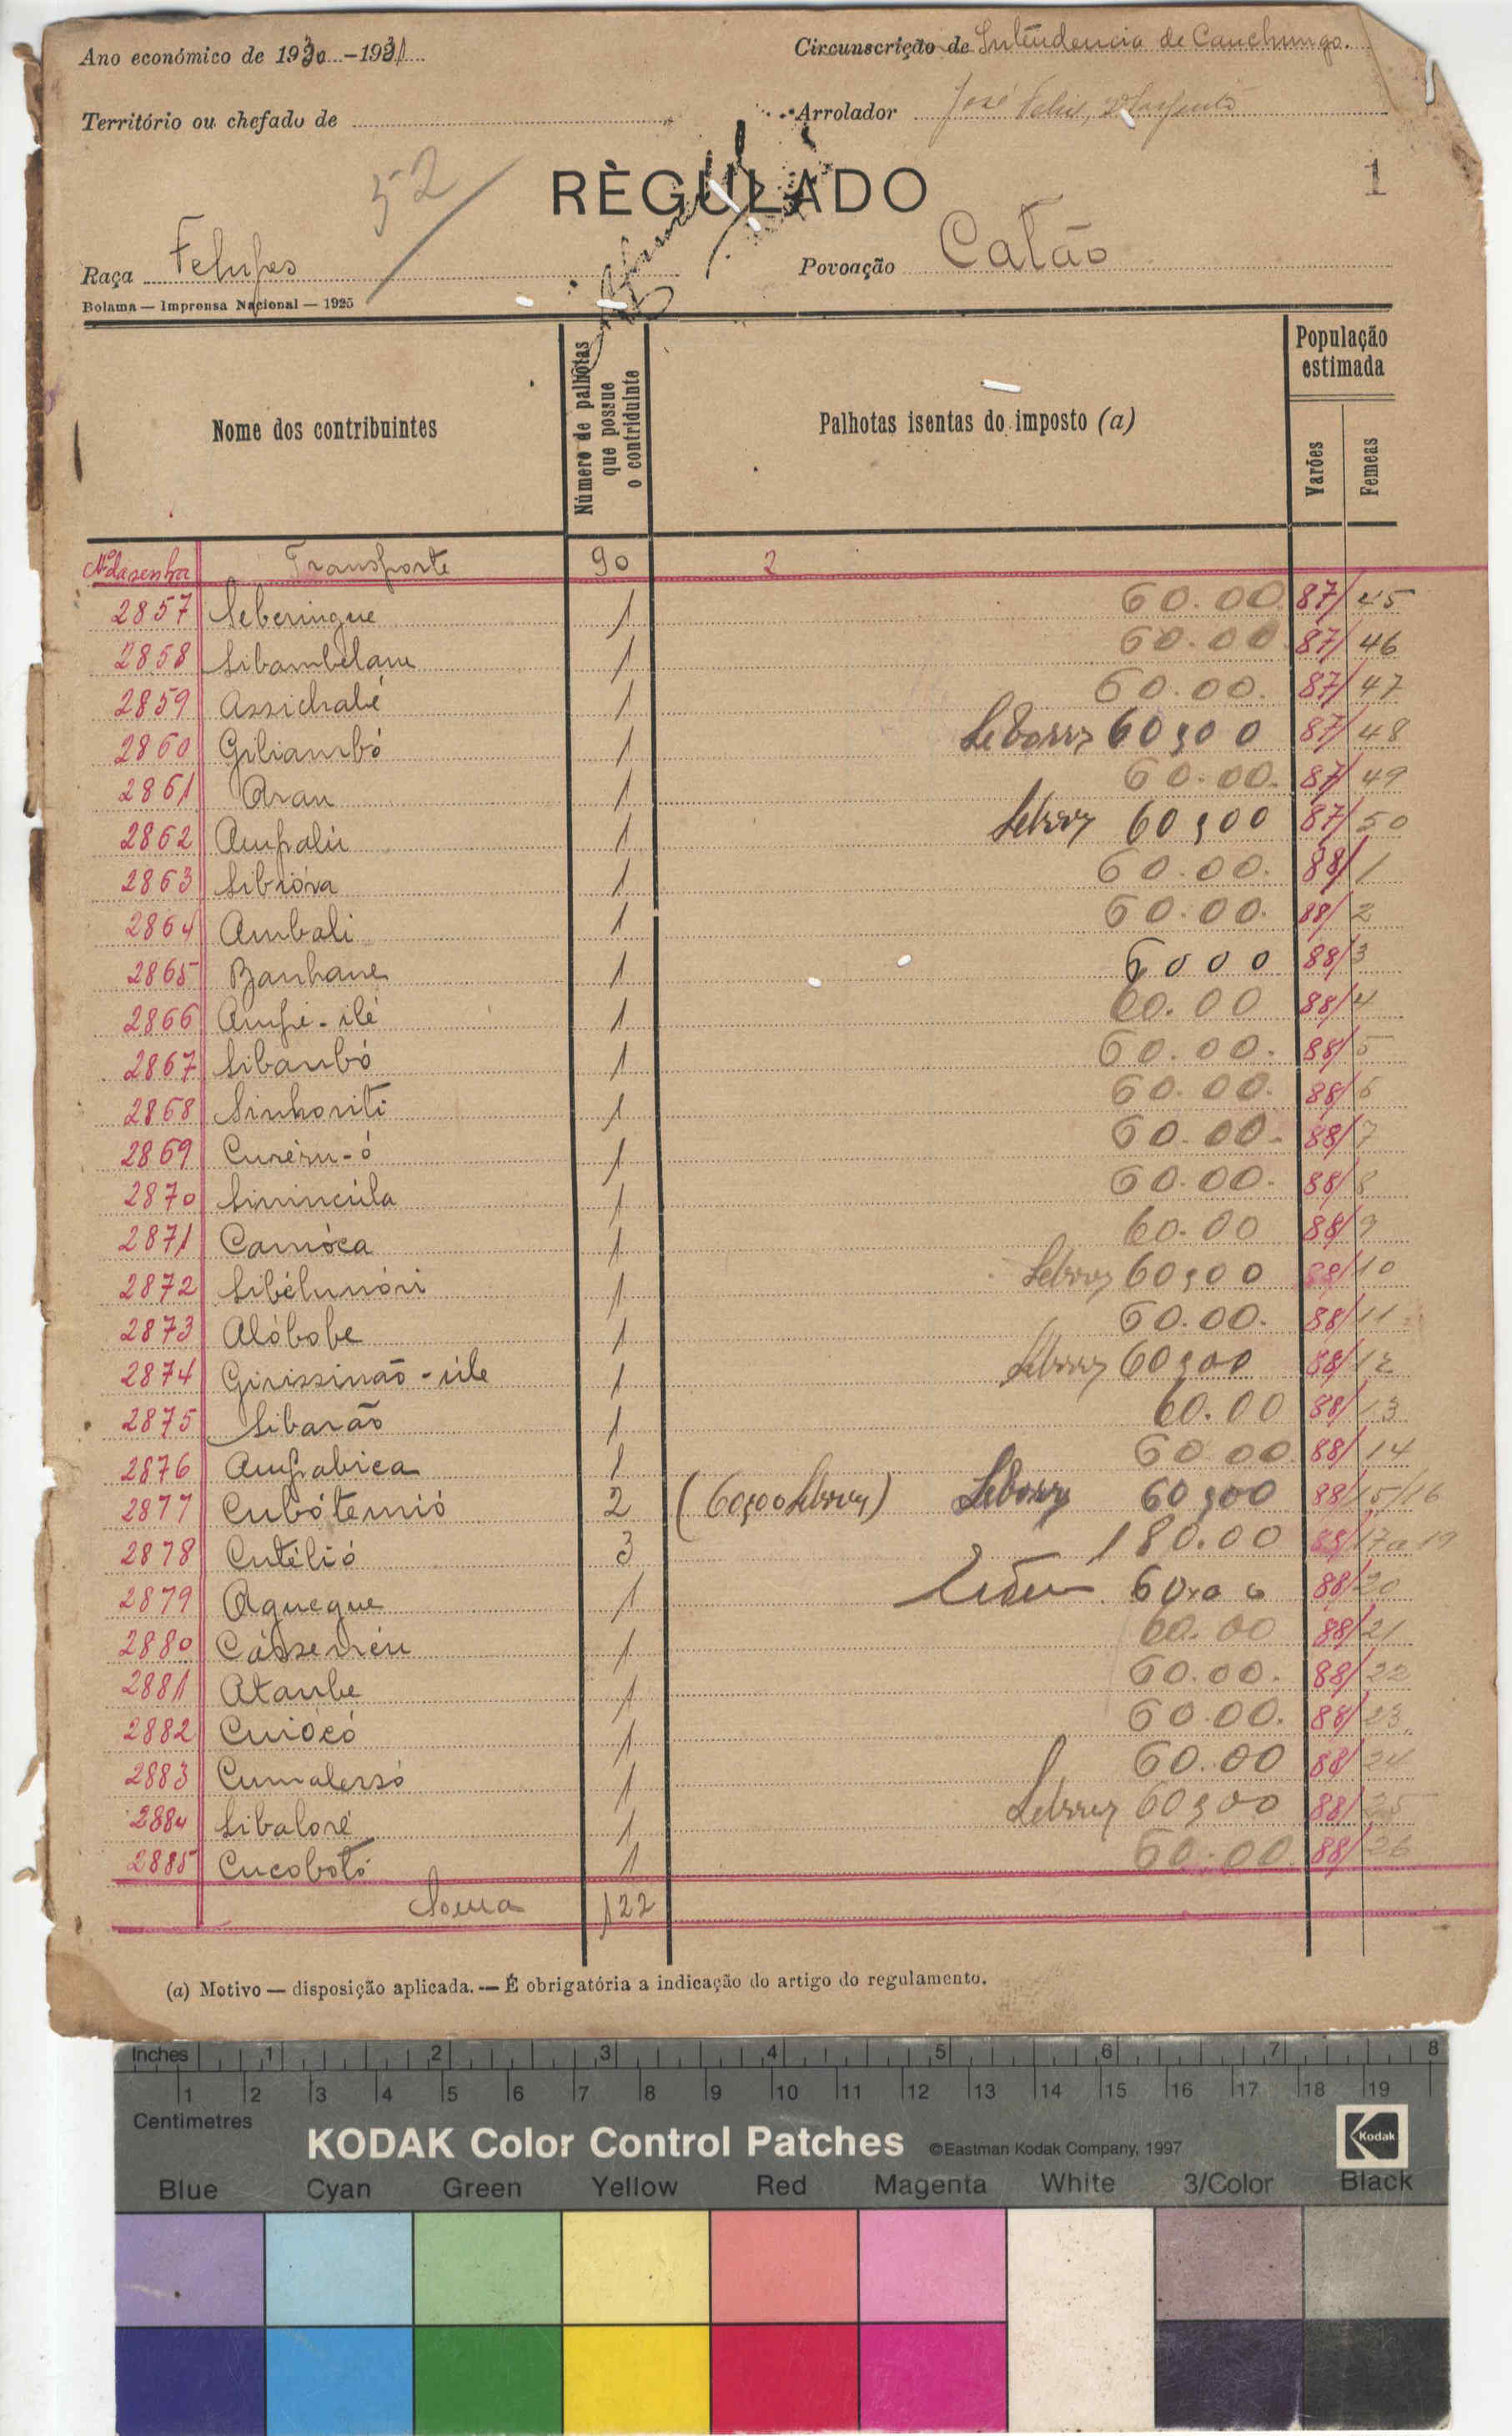 Ano económico de 1930-1931
Circunscrição de Intendencia de Canchungo.
Território ou chefado de
Arrolador José
52
RÈGULADO
1
Raça Felupes
Povoação Catão
Bolama — Imprensa Nacional — 1925
Nome dos contribuintes
Número de palhotas
que possue
o contriduinte
Palhotas isentas do imposto (a)
População
estimada
Varões
Femeas
Nº da senha Transporte 90 2
2857 Seberingue 1 60.00 87/45
2858 Sibambelane 1 60.00 87/46
2859 Assichabé 1 60.00. 87/47
2860 Giliambó 1 60$00 87/48
2861 Aran 1 60.00. 87/49
2862 Ampalú 1 60$00 87/50
2863 Sibróva 1 60.00. 88/1
2864 Ambali 1 60.00. 88/2
2865 Banhane 1 6000 88/3
2866 Ampi-ilé 1 60.00 88/4
2867 Sibambó 1 60.00. 88/5
2868 Sinhoriti 1 60.00. 88/6
2869 Curému-ó 1 60.00- 88/7
2870 Simincúla 1 60.00. 88/8
2871 Camóca 1 60.00 88/9
2872 Sibélunóri 1 60$00 88/10
2873 Alóbobe 1 60.00. 88/11
2874 Girissinão-úle 1 60$00 88/12
2875 Sibarão 1 60.00 88/13
2876 Ampabica 1 60.00 88/14
2877 Cubótemió 2 (60$00 ) 60$00 88/15/16
2878 Cutélió 3 180.00 88/17a19
2879 Aqueque 1 60 88/20
2880 Cásseméu 1 60.00 88/21
2881 Atambe 1 60.00. 88/22
2882 Cuiócó 1 60.00. 88/23
2883 Cumalessó 1 60.00 88/24
2884 Sibaloré 1 60$00 88/25
2885 Cucobotó 1 60.00. 88/26
Soma 122
(a) Motivo — disposição aplicada. — É obrigatória a indicação do artigo do regulamento.
Inches 1 2 3 4 5 6 7 8
1 2 3 4 5 6 7 8 9 10 11 12 13 14 15 16 17 18 19
Centimetres
KODAK Color Control Patches ©Eastman Kodak Company, 1997
Kodak
Blue Cyan Green Yellow Red Magenta White 3/Color Black